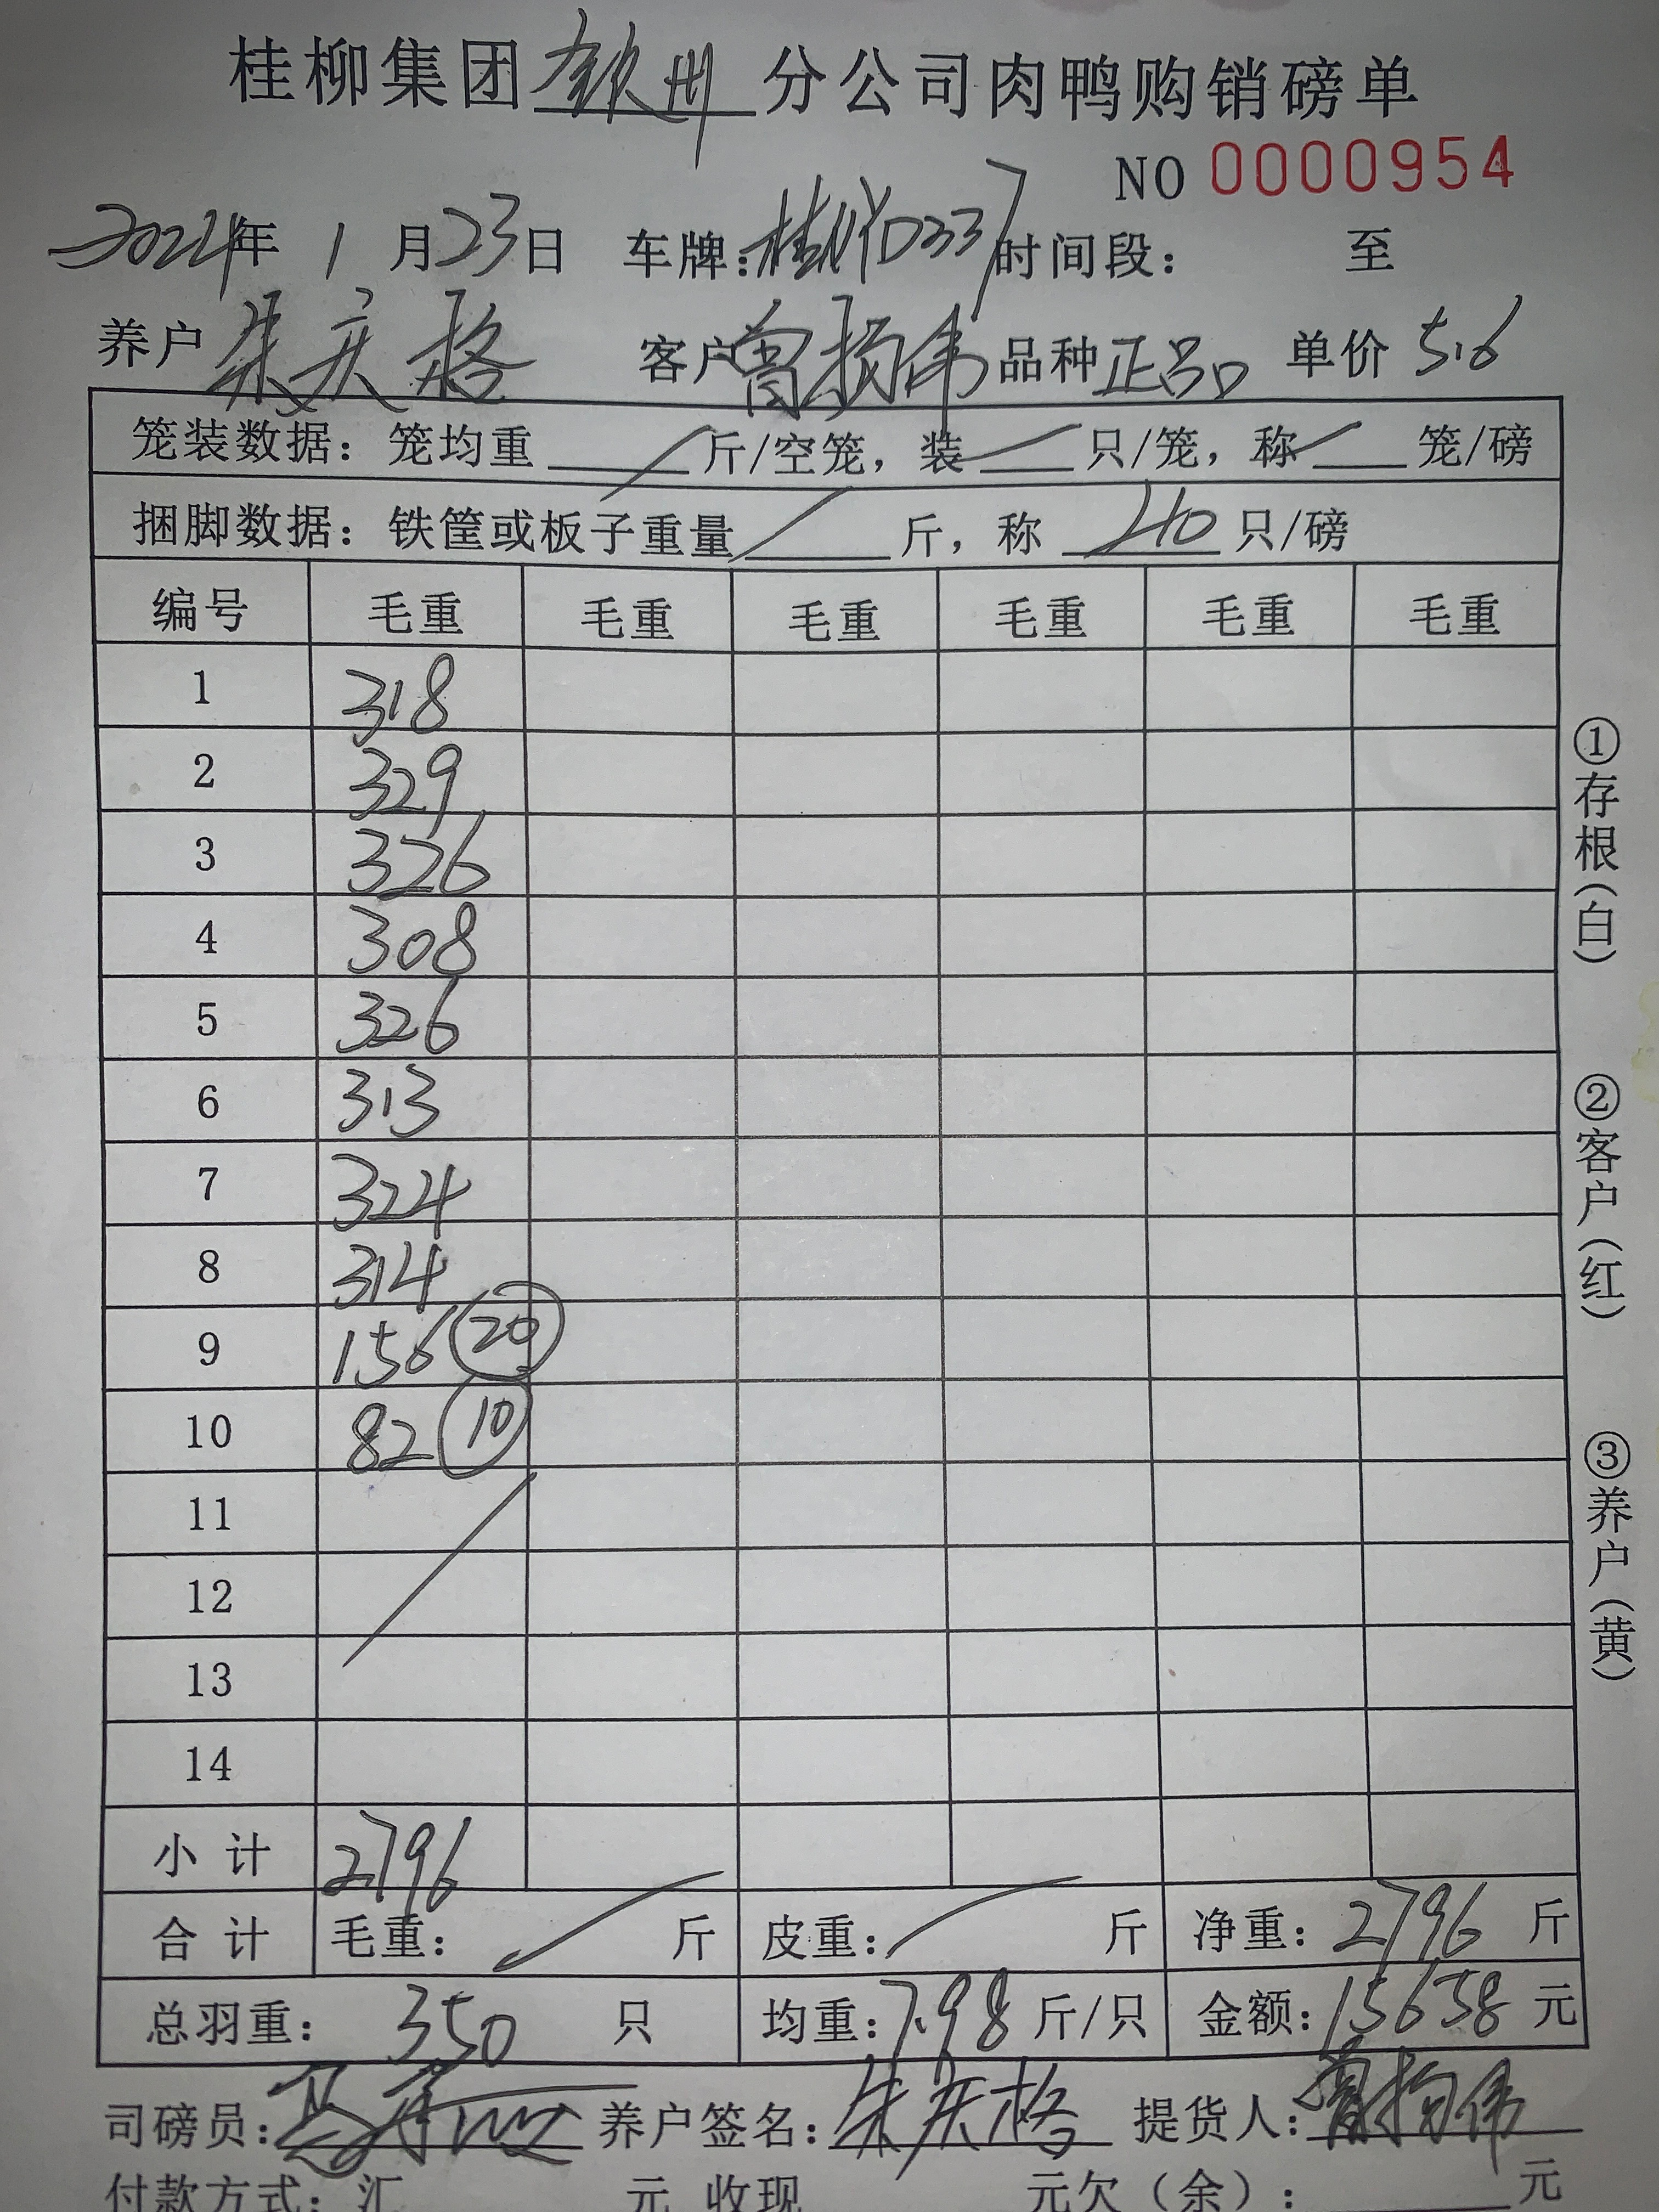 桂柳集团钦州分公司肉鸭购销磅单
NO 0000954
2024年 1月23日 车牌: 时间段: 至
养户 朱庆格 客户 品种 正品 单价 5.6
笼装数据: 笼均重 / 斤/空笼, 装 / 只/笼, 称 / 笼/磅
捆脚数据: 铁筐或板子重量 / 斤, 称 40 只/磅
编号 毛重 毛重 毛重 毛重 毛重 毛重
1 318
2 329
3 326
4 308
5 326
6 313
7 324
8 314
9 156 20
10 82 10
11
12
13
14
小计 2796
合计 毛重: / 斤 皮重: / 斤 净重: 2796 斤
总羽重: 350 只 均重: 7.98 斤/只 金额: 15658 元
司磅员: 养户签名: 朱庆格 提货人:
付款方式: 汇 元 收现 元欠(余): 元
①存根(白)
②客户(红)
③养户(黄)